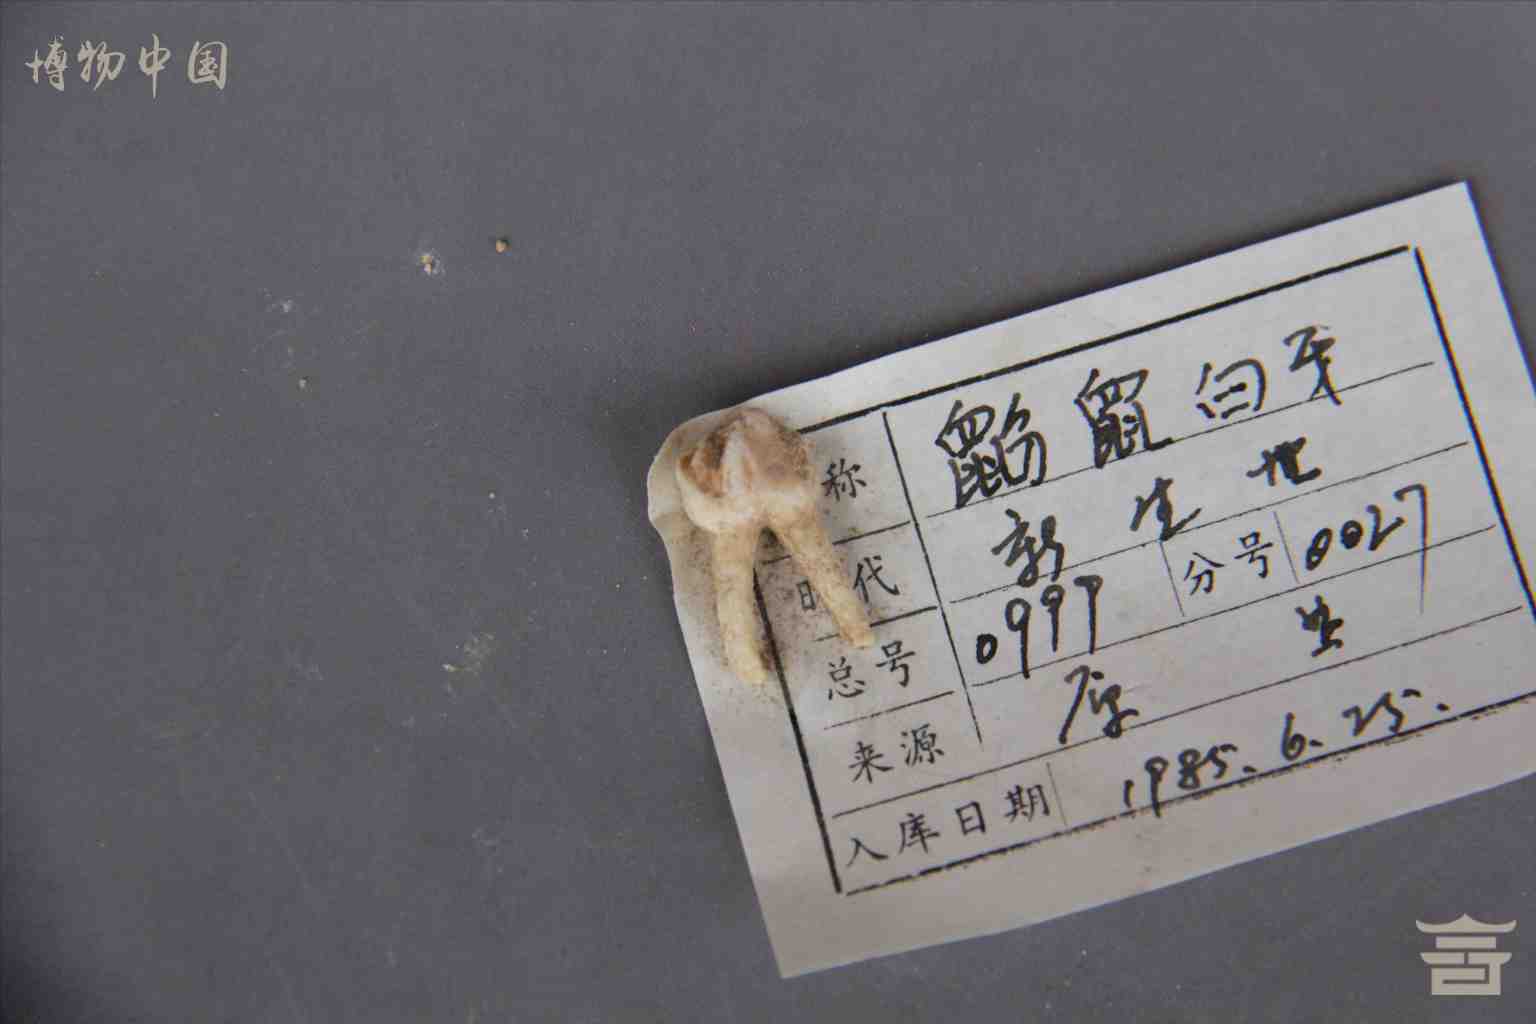 博物中国
称 鼢鼠臼牙
时代 新生世
总号 0999 分号 0027
来源 原
入库日期 1985.6.25.